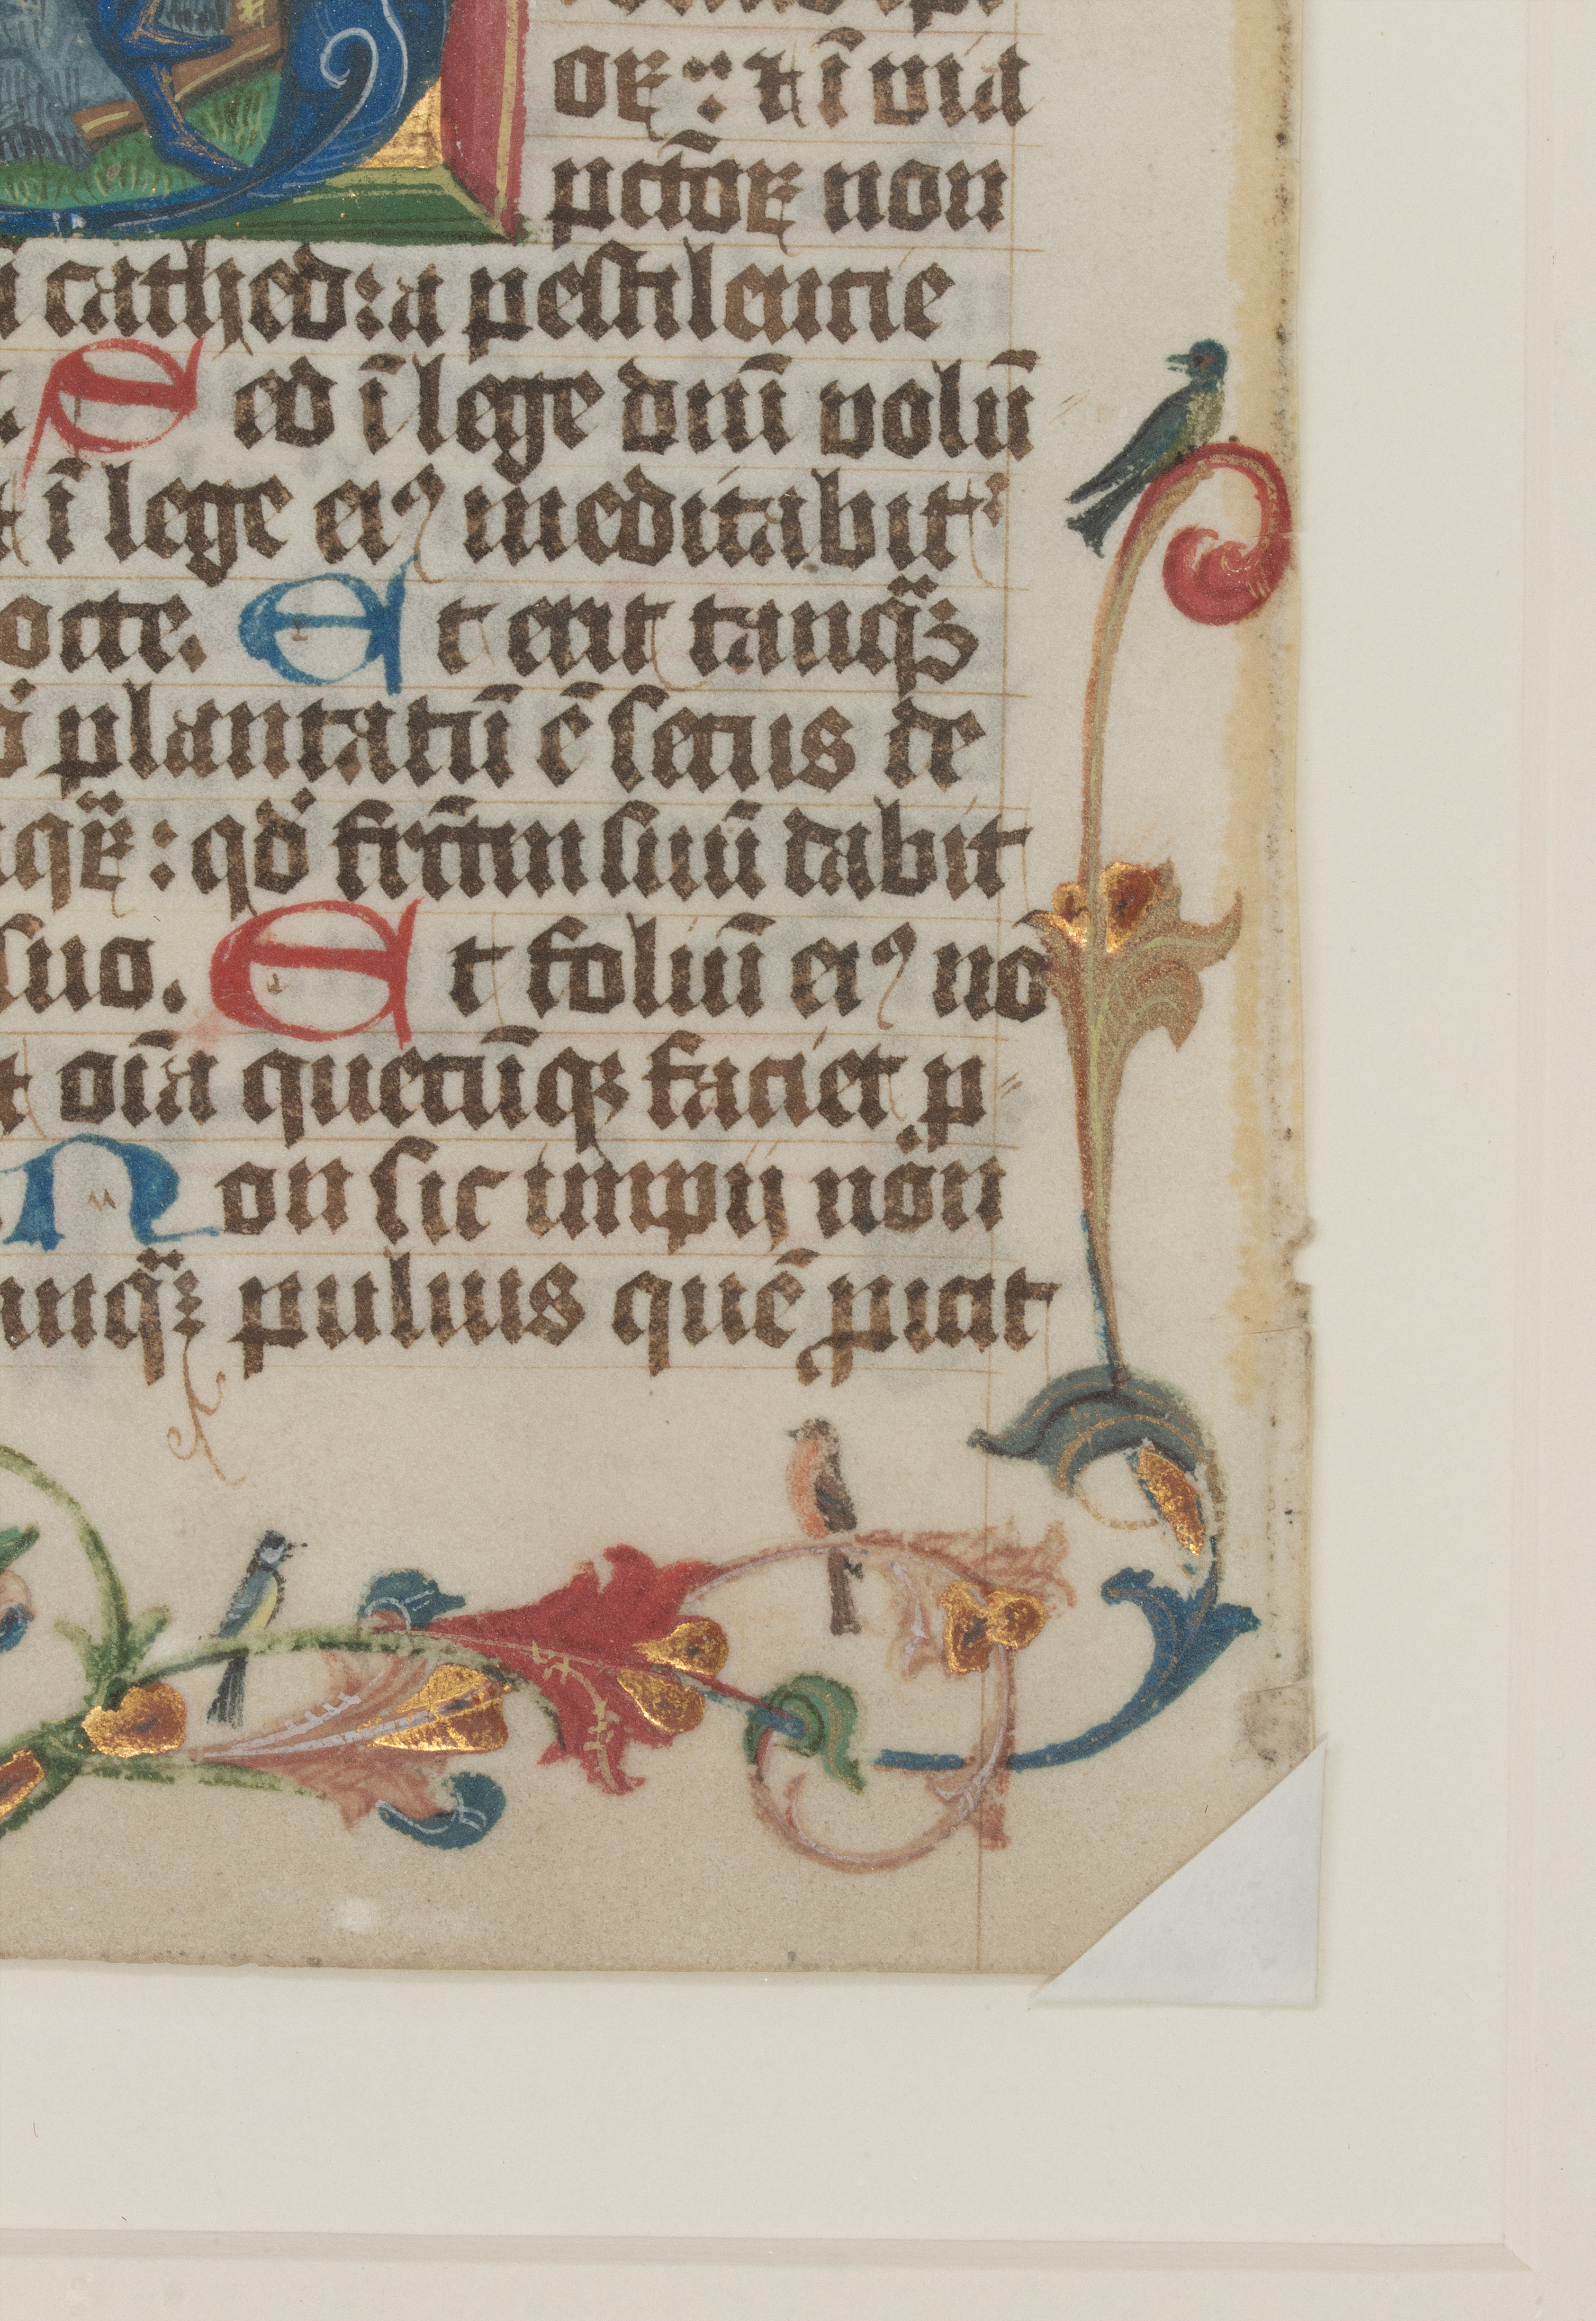 oꝝ: ⁊ ī via
pctōꝝ non
cathedra pestilencie
Sed ī lege dnī volū
ī lege eiꝰ meditabit᷑
octe. Et erit tanqᷓꝫ
plantatū ē secus de
qᷓꝝ: qd̓ fructum suū dabit
suo. Et foliū eiꝰ nō
⁊ oīa quecūqꝫ faciet p
Non sic impij non
anqᷓꝫ puluis quē ꝓicit